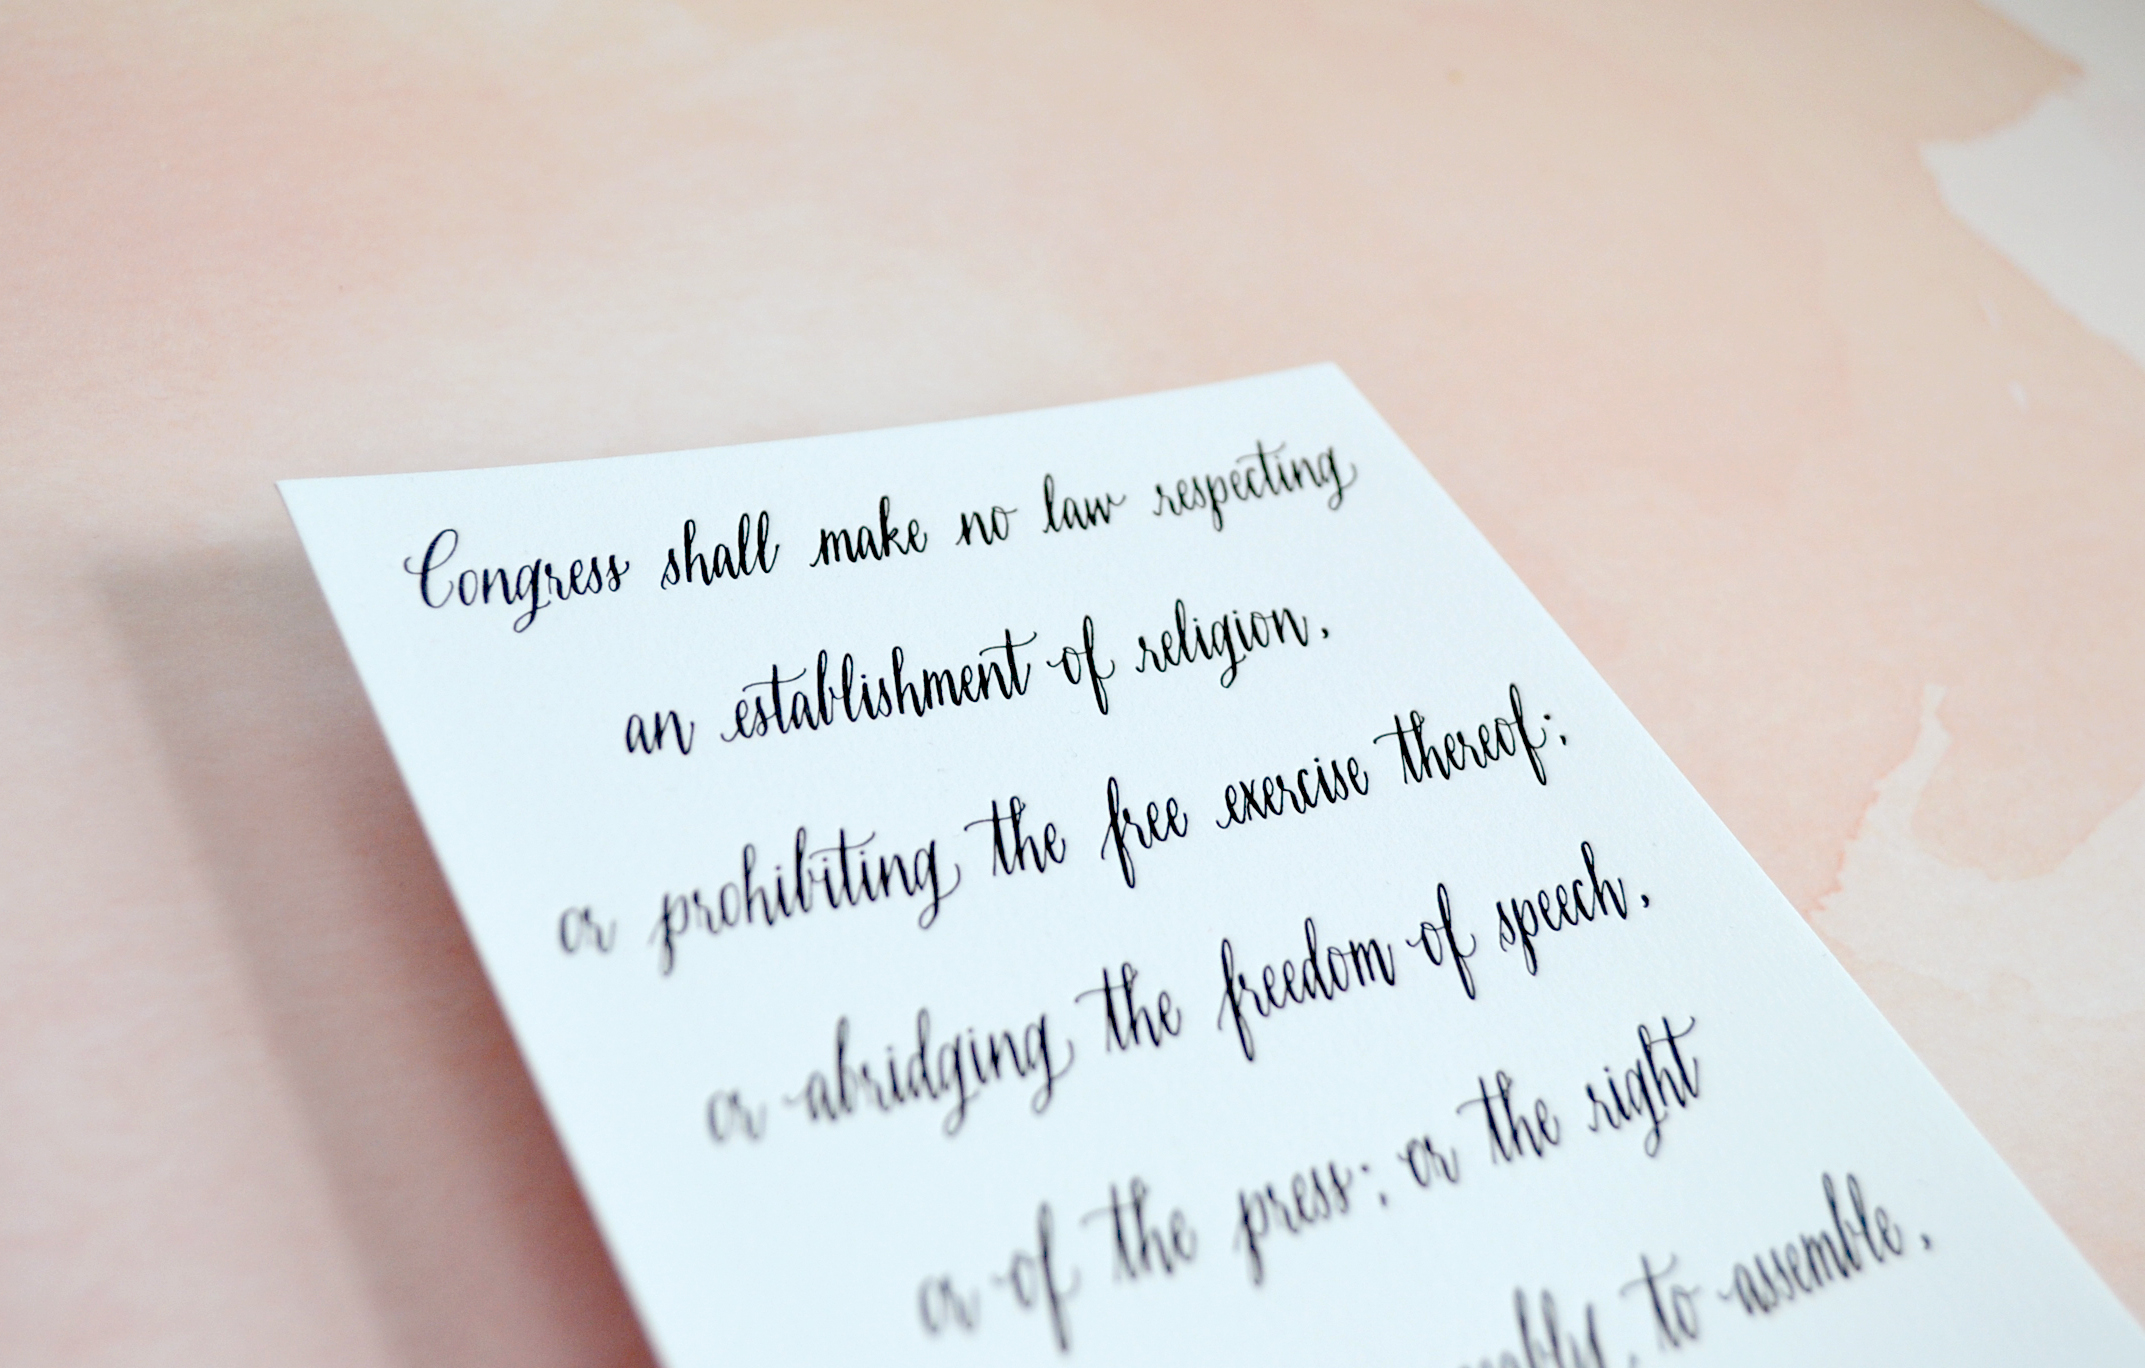 Congress shall make no law respecting
an establishment of religion,
or prohibiting the free exercise thereof;
or abridging the freedom of speech,
or of the press; or the right
to assemble,